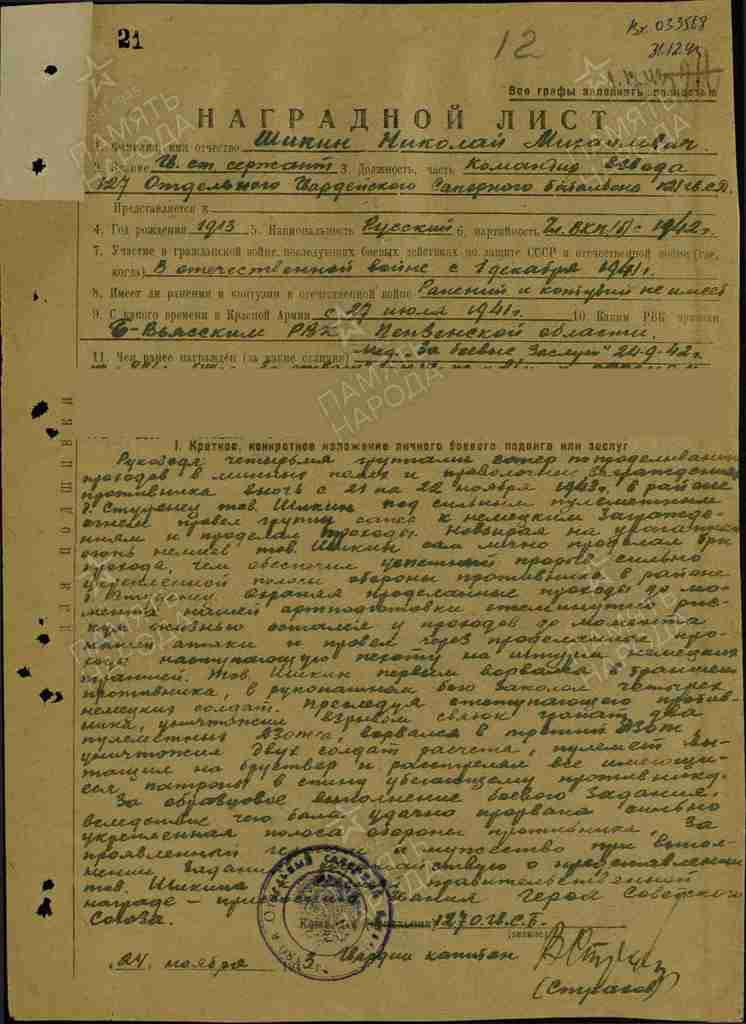 21
12
Вх. 033568
31.12.43
Все графы заполнять полностью
НАГРАДНОЙ ЛИСТ
1. Фамилия, имя отчество Шикин Николай Михайлович.
2. Звание Гв. ст. сержант 3. Должность, часть Командир взвода
127 Отдельного Гвардейского Саперного батальона 121 гв. с.д.
Представляется к
4. Год рождения 1913 5. Национальность Русский 6. партийность Чл. ВКП(б) с 1942 г.
7. Участие в гражданской войне, последующих боевых действиях по защите СССР и отечественной войне (где,
когда) В отечественной войне с 1 декабря 1941 г.
8. Имеет ли ранения и контузии в отечественной войне Ранений и контузий не имеет
9. С какого времени в Красной Армии с 27 июля 1941 г. 10. Каким РВК призван
Б-Вьясским РВК Пензенской области.
11. Чем ранее награжден (за какие отличия) Мед. "За боевые Заслуги" 24-9-42 г.
I. Краткое, конкретное изложение личного боевого подвига или заслуг
Руководя четырьмя группами сапер по проделыванию
проходов в минных полях и проволочных заграждениях
противника в ночь с 21 на 22 ноября 1943 г. в районе
д. Студенец тов. Шикин под сильным пулеметным
огнем провел группу сапер к немецким загражде-
ниям и проделал проходы. Невзирая на ураганный
огонь немцев тов. Шикин сам лично проделал три
прохода, чем обеспечил успешный прорыв сильно
укрепленной полосы обороны противника в районе
д. Студенец. Охраняя проделанные проходы до мо-
мента нашей артподготовки ежеминутно рис-
куя жизнью остался у проходов до момента
нашей атаки и провел через про
ходы наступающую пехоту на штурм немецких
траншей. Тов. Шикин первым ворвался в траншеи
противника, в рукопашном бою заколол четырех
немецких солдат. Преследуя отступающего против-
ника, уничтожил взрывом связок гранат два
пулеметных дзота, ворвался в третий дзот,
уничтожил двух солдат расчета, пулемет вы-
тащил на бруствер и расстрелял все имеющи-
еся патроны в спину убегающему противнику.
За образцовое выполнение боевого задания,
вследствие чего была удачно прорвана сильно
укрепленная полоса обороны противника, за
проявленный и мужество при выпол-
нении задания о представлении
тов. Шикина правительственной
награде - звания Героя Советского
Союза.
127 О.гв.С.Б.
(подпись)
Гвардии капитан
24 ноября 3
(Страхов)
ДЛЯ ПОДШИВКИ
ПАМЯТЬ
НАРОДА